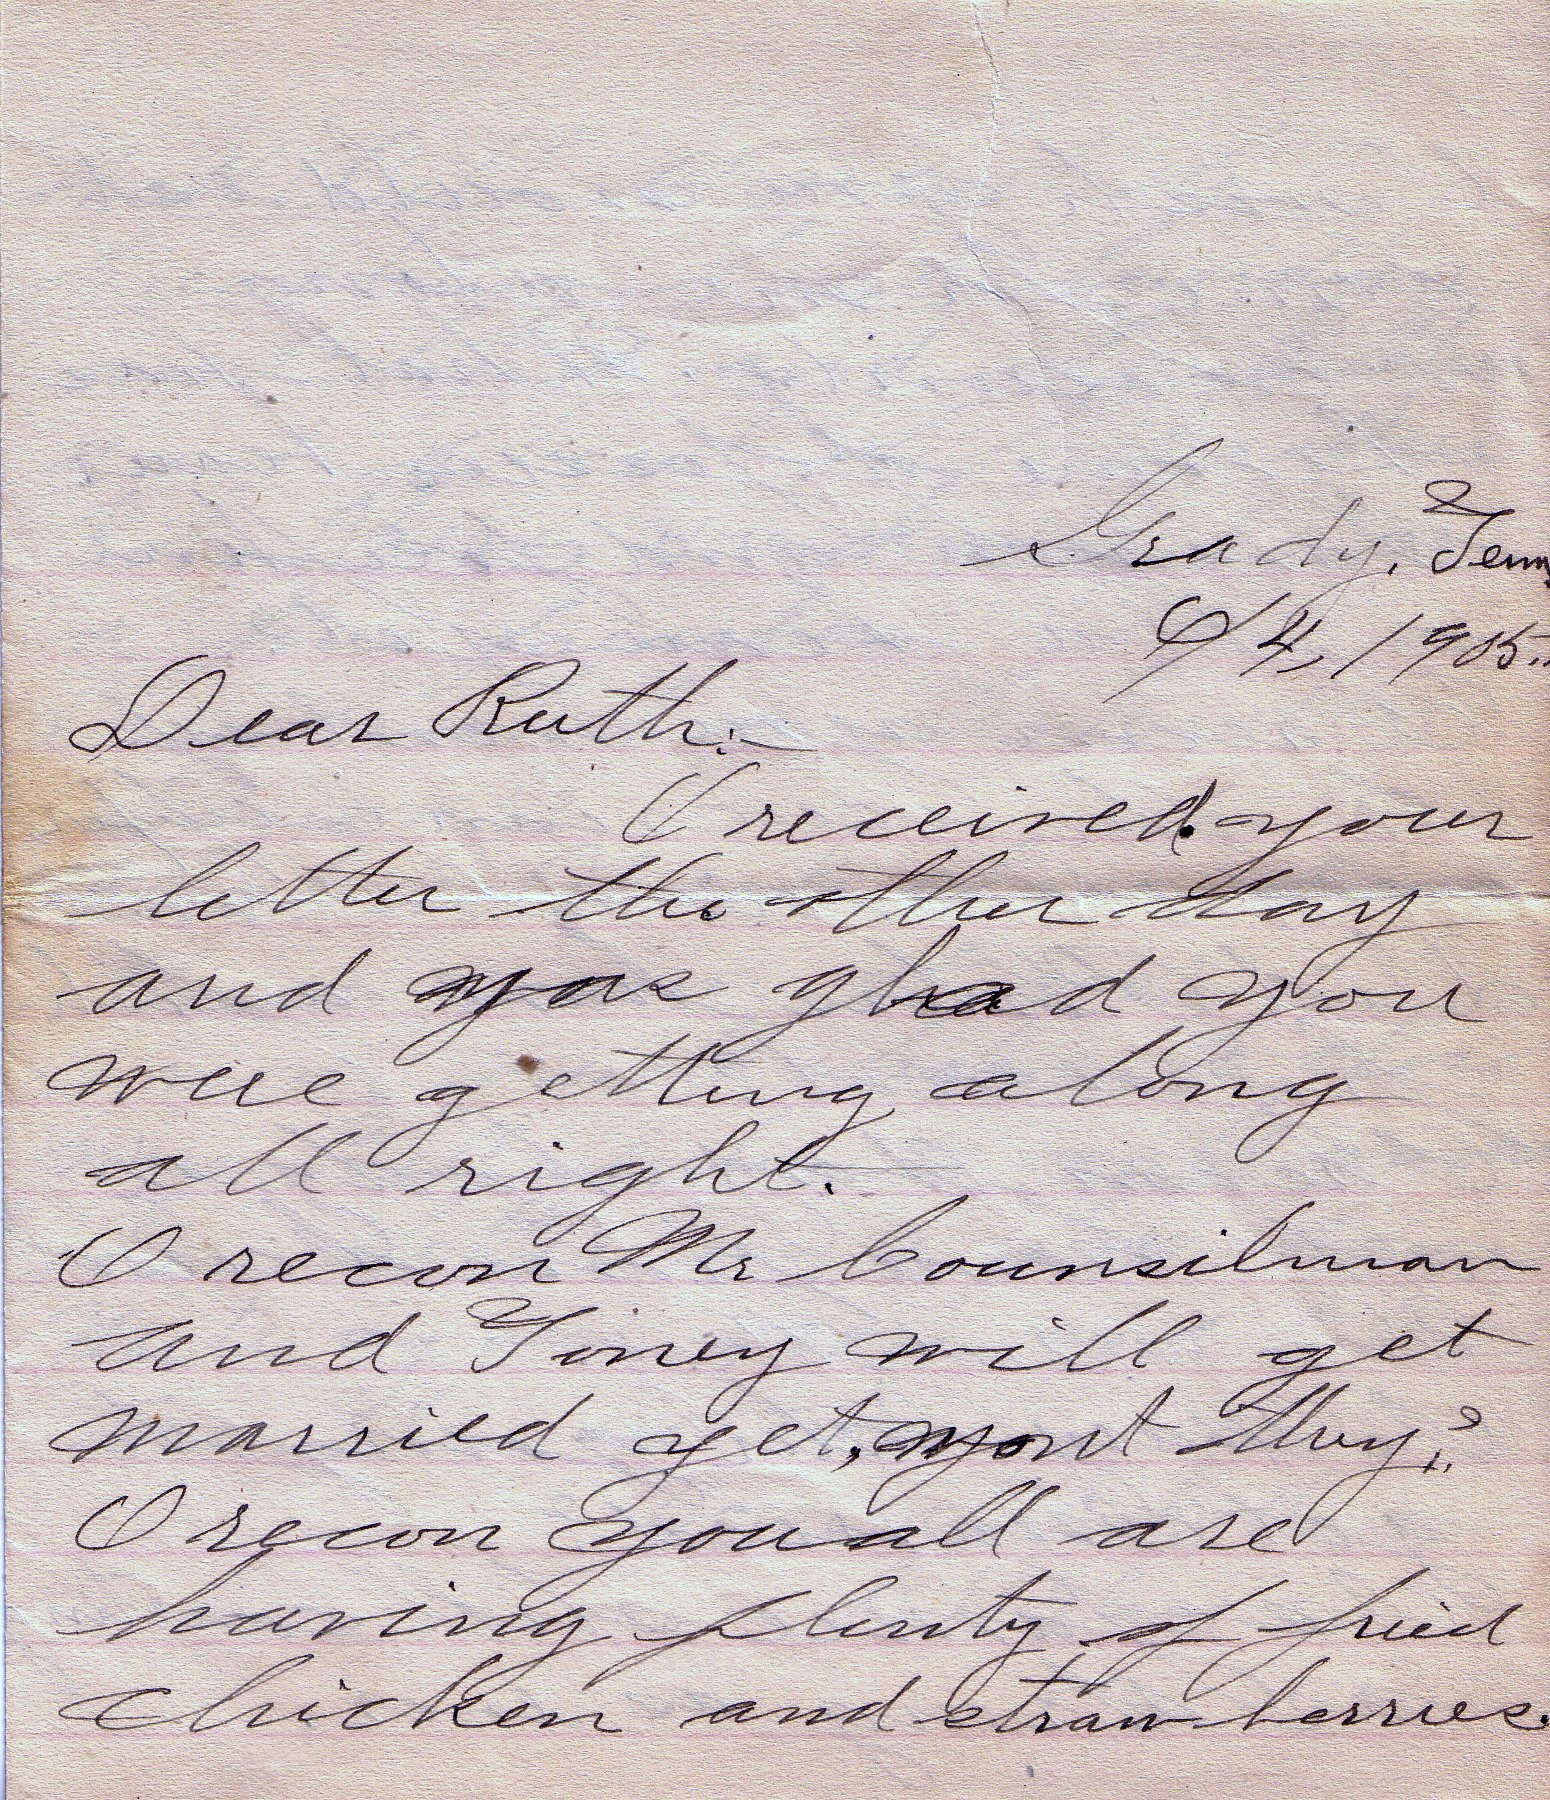 Grady, Tenn
6/4, 1905.
Dear Ruth:-
I received your
letter the other day
and was glad you
were getting along
all right.
I recon Mr Counsilman
and Toney will get
married yet, wont they?
I recon you all are
having plenty of fried
chicken and strawberries.